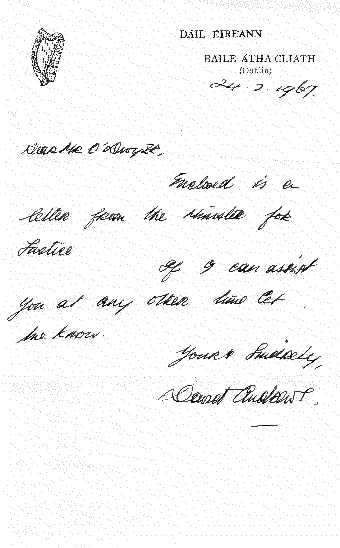 DÁIL EIREANN
BAILE ÁTHA CLIATH
(Dublin)
24. 2. 1967.
Dear Mr O'Dwyer,
Enclosed is a
letter from the Minister for
Justice
If I can assist
you at any other time let
me know.
Yours Sincerely,
David Andrews.